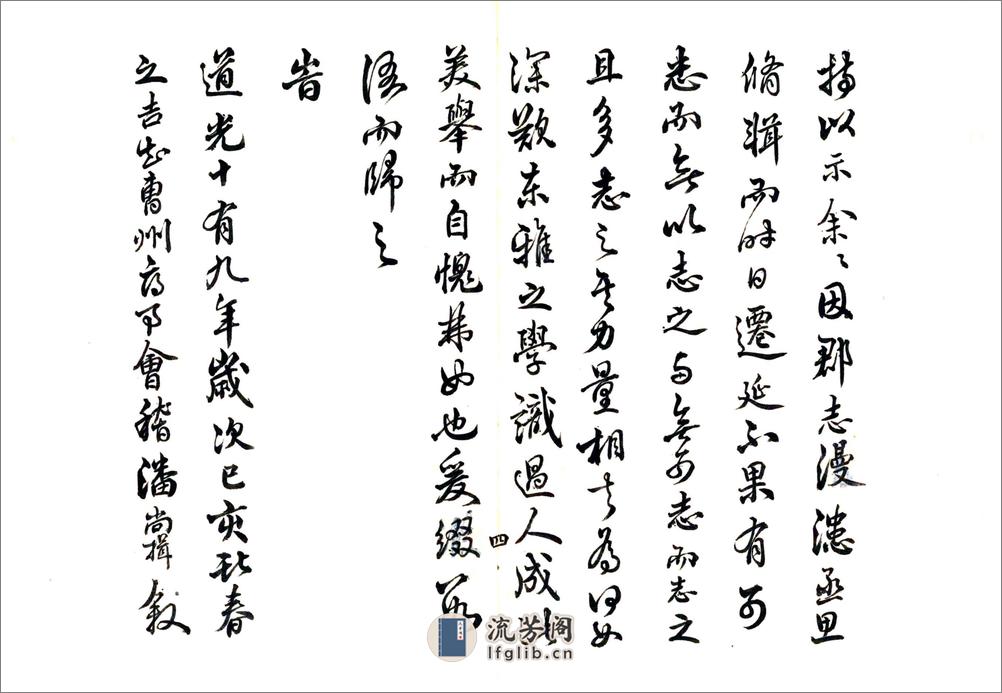 持以示余余因郡志漫漶亟思
脩輯而时日遷延不果有可
志而無以志之与無可志而志之
且多志之其力量相去為何如
深歎東雅之學識過人成此
美舉而自愧弗如也爰綴数
語而歸之
旹
道光十有九年歲次己亥孟春
之吉知曹州府事會稽潘尚楫叙
四
流芳阁
lfglib.cn